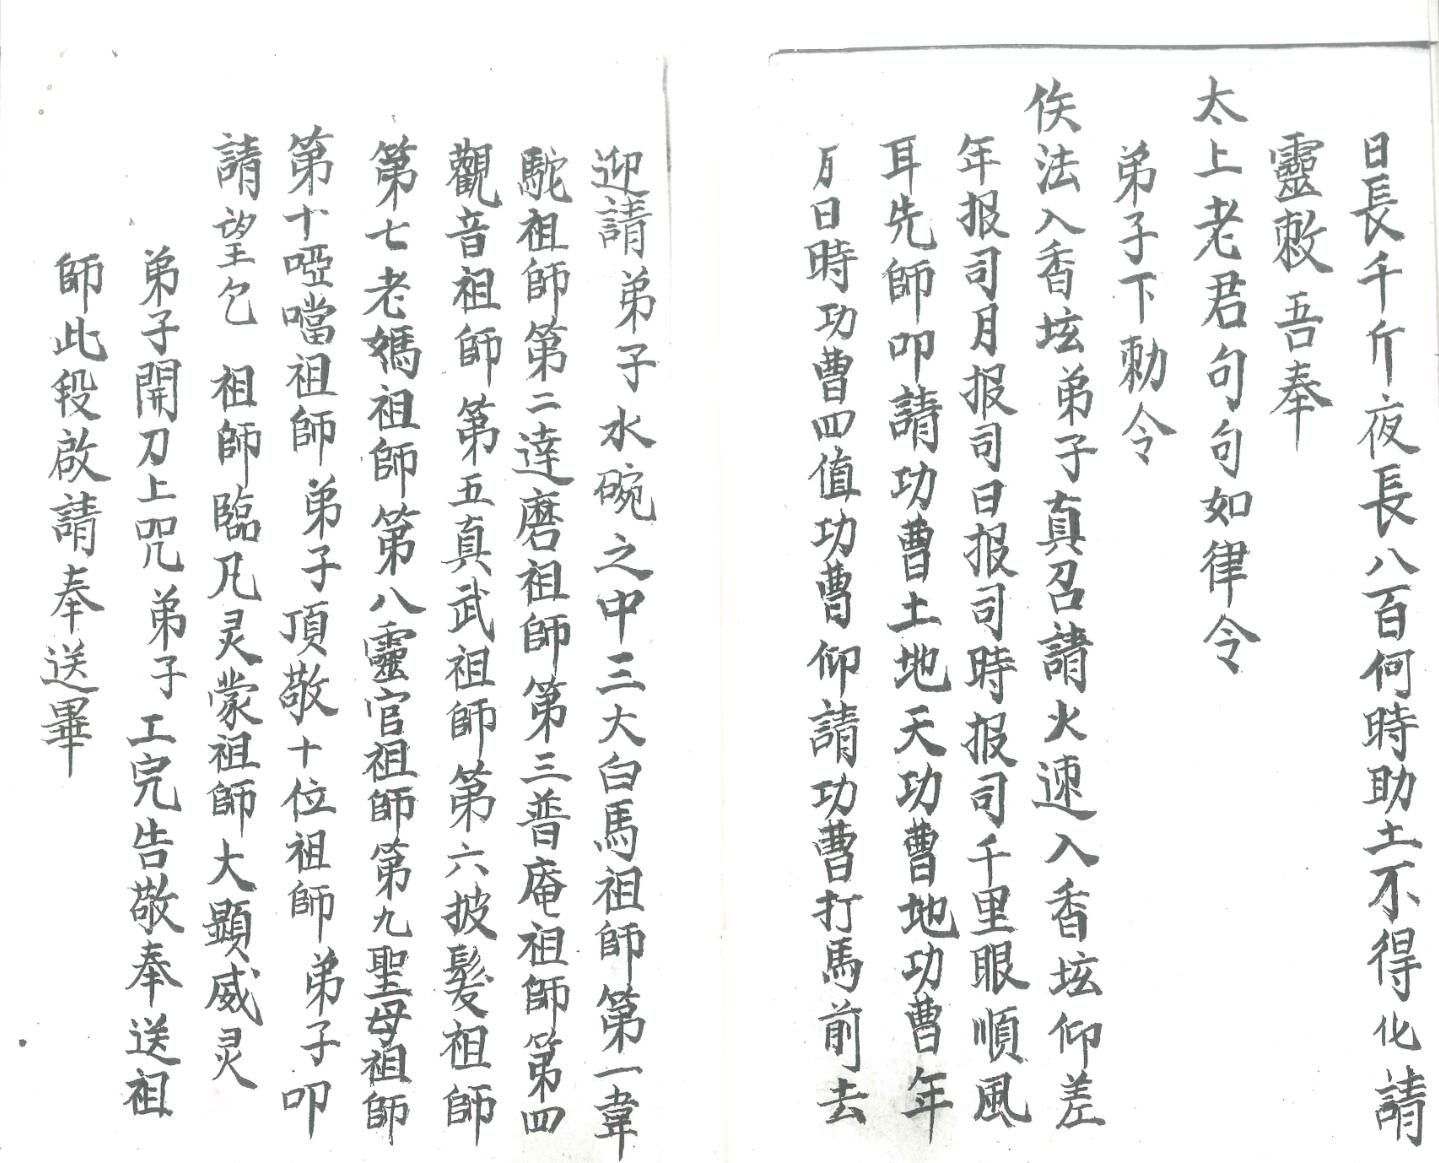 日長千斤夜長八百何時助土不得化請
靈敕吾奉
太上老君句句如律令
弟子下勅令
俟法入香垓弟子真召請火速入香垓仰差
年报司月报司日报司時报司千里眼順風
耳先師叩請功曹土地天功曹地功曹年
月日時功曹四值功曹仰請功曹打馬前去
迎請弟子水碗之中三大白馬祖師第一韋
駝祖師第二達磨祖師第三普庵祖師第四
觀音祖師第五真武祖師第六披髮祖師
第七老媽祖師第八靈官祖師第九聖母祖師
第十啞噹祖師弟子頂敬十位祖師弟子叩
請望乞祖師臨凡灵蒙祖師大顯威灵
弟子開刀上咒弟子工完告敬奉送祖
師此段啟請奉送畢